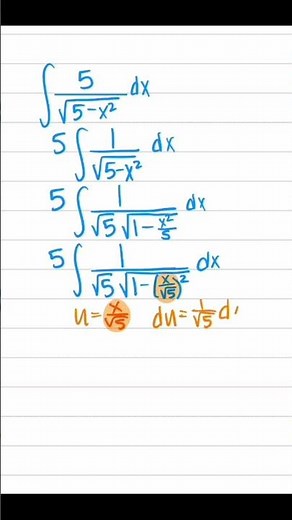 ∫ 5/√(5-x²) dx
5 ∫ 1/√(5-x²) dx
5 ∫ 1/(√5 √(1-x²/5)) dx
5 ∫ 1/(√5 √(1-(x/√5)²)) dx
u = x/√5 du = 1/√5 d